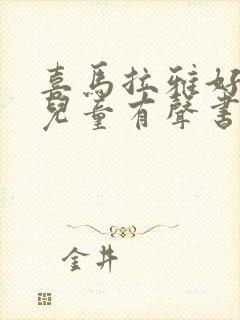 喜馬拉雅好
兒童有聲書
金井